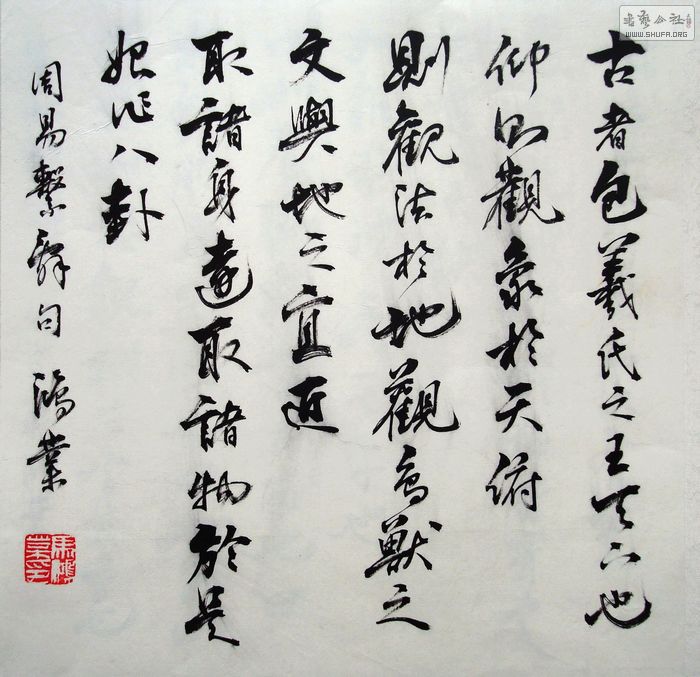 古者包羲氏之王天下也
仰則觀象於天俯
則觀法於地觀鳥獸之
文與地之宜近
取諸身遠取諸物於是
始作八卦
周易繫辭句 鴻業
書藝公社
WWW.SHUFA.ORG